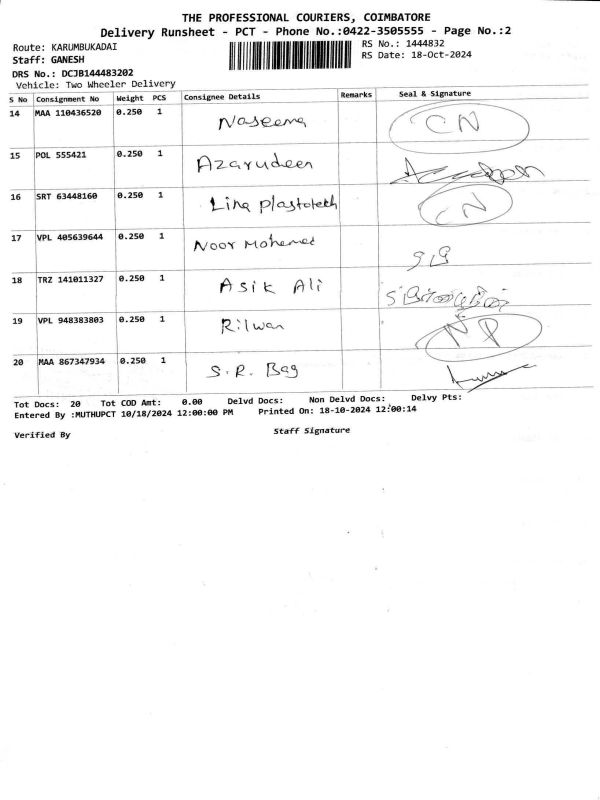 THE PROFESSIONAL COURIERS, COIMBATORE
Delivery Runsheet - PCT - Phone No.:0422-3505555 - Page No.:2
Route: KARUMBUKADAI RS No.: 1444832
Staff: GANESH RS Date: 18-Oct-2024
DRS No.: DCJB144483202
Vehicle: Two Wheeler Delivery
S No Consignment No Weight PCS Consignee Details Remarks Seal & Signature
14 MAA 110436520 0.250 1 Naseema CN
15 POL 555421 0.250 1 Azarudeen
16 SRT 63448160 0.250 1 Lina plastotech CN
17 VPL 405639644 0.250 1 Noor Mohamed
18 TRZ 141011327 0.250 1 Asik Ali
19 VPL 948383803 0.250 1 Rilwan NP
20 MAA 867347934 0.250 1 S.R. Bag
Tot Docs: 20 Tot COD Amt: 0.00 Delvd Docs: Non Delvd Docs: Delvy Pts:
Entered By :MUTHUPCT 10/18/2024 12:00:00 PM Printed On: 18-10-2024 12:00:14
Verified By Staff Signature